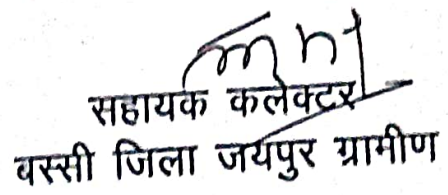 सहायक कलेक्टर
बस्सी जिला जयपुर ग्रामीण